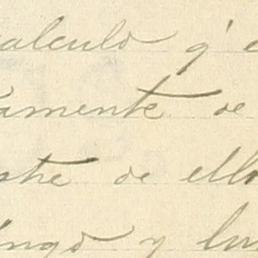 calculo q'
amente de
stre de ello
ingo y lu